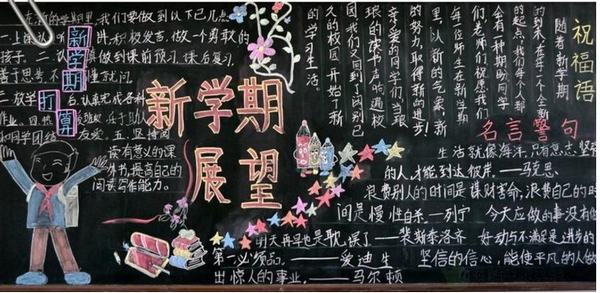 在新的学期里,我们要做到以下几点
一、上课 听讲,积极发言,做一个勇敢的
孩子。二、认真做到课前预习,课后复习
善于思考,不懂就问
放学 后,认真完成各种
作业。四、热爱班级,乐于助
和同学团结友爱。五、坚持阅
读有意义的课
外书,提高自己的
阅读写作能力。
新学期
打算
新学期
展望
祝福语
随着新学期
的到来,在每一个全新
的起点,我们每个人都
会有一种期盼,同学
们,老师们祝愿我们
每位师生在新学期
里,以新的气象、新
的努力,取得新的进步!
亲爱的同学们,当琅
琅的读书声响遍校
园,我们又回到了阔别已
久的校园,开始了新
的学习生活。
名言警句
生活就像海洋,只有意志坚强
的人,才能到达彼岸。——马克思
浪费别人的时间是谋财害命,浪费自己的时
间是慢性自杀——列宁 今天应做的事没有做
明天再早也是耽误了——裴斯泰洛齐 好动与不满足是进步的
第一必须品。——爱迪生 坚信的信心,能使平凡的人做
出惊人的事业。——马尔顿